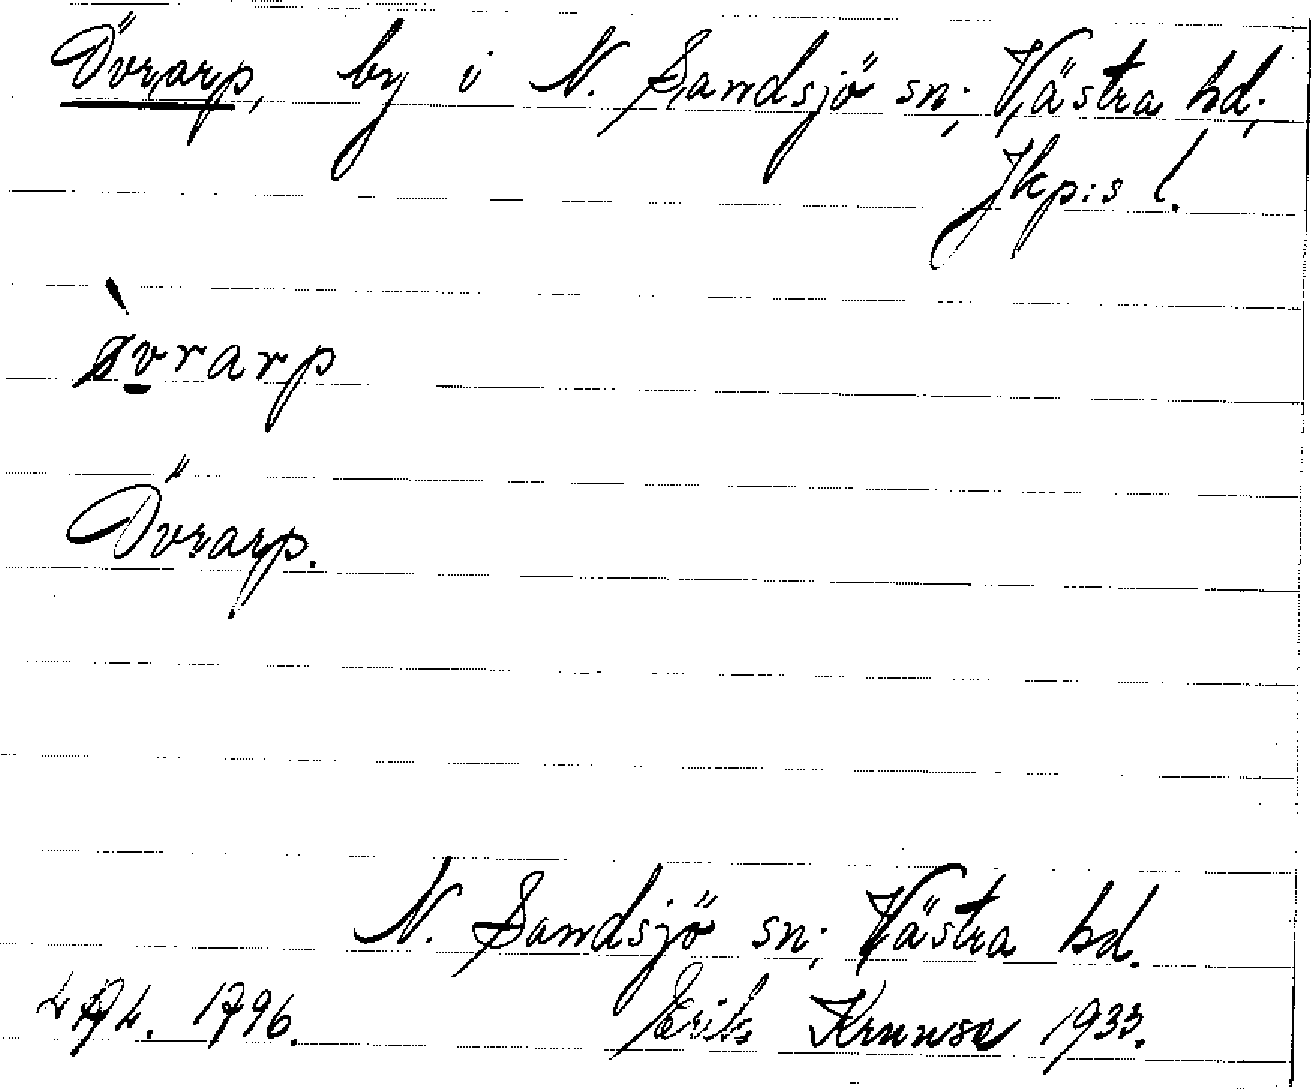 Övrarp, by i N. Sandsjö sn; Västra hd;
Jkp:s l.
Övrarp.
N. Sandsjö sn; Västra hd.
1796. Erik 1933.